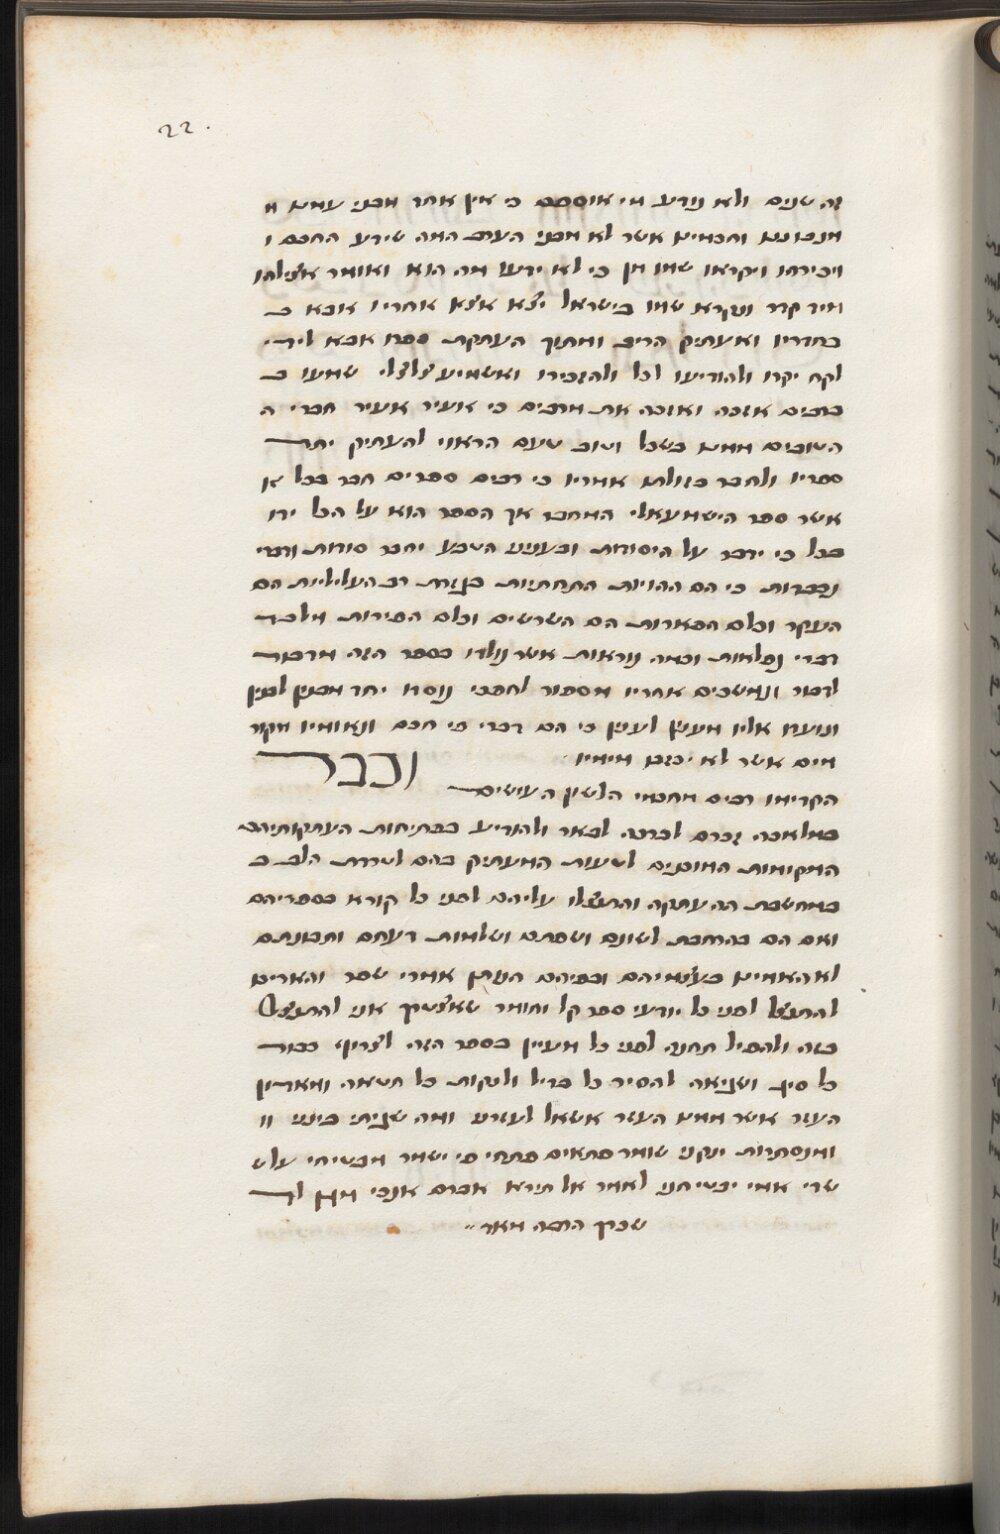 22.
זה שנים ולא נודע מי אוספם כי אין אחד מבני עמים מ
מנבונים וחכמים אשר לא מבני הערב המה שידע החכם ו
ויכירהו ויקראו שמו מן כי לא ידעו מה הוא ואומר אצילהו
מיד קדר ונקרא שמו בישראל יצא אצא אחריו אבא ב
בחדריו ואעתיק הריב ומתוך העתקת ספרו אבא לידי
לקח יקרו ולהודיעו לכל ולהזכירו ואשמיע צלצלי שמעו ב
ברבים אזכה ואזכה את מרבים כי אעיר אעיר חברי ה
השובים ממים בשכל וטוב טעם הראוי להעתיק יתר
ספריו ולחבר בגולתם אמריו כי רבים ספרים חבר בכל או
אשר ספר הישמעאלי המחבר אך הספר הוא על הכל ירו
בכל כי ידבר על היסודות ובענינם הטבע יחבר סודות ודברי
נכבדות כי הם ההויות התחתיות העליליות הם
העקר וכלם הפארות הם השרשים וכלם הפירות מלבד
דברי נפלאות וכמה נוראות אשר נולדו בספר הזה מדבור
לדבור ונמשכים אחריו מספור לספור נוסדו יחד מבנין לבנין
ונועדו אליו מענין לענין כי הם דברי פי חכם ונאומיו מקור
מים אשר לא יכזבו מימיו
וכבר
הקדימו רבים מחכמי הלשון העושים
במלאכה זכרם לברכה לבאר ולהודיע בפתיחות העתקותיהם
המקומות המוכנים לטעות המעתיק בהם לטרדת הלב ב
במחשבת ההעתקה והתנצלו עליהם לפני כל קורא בספריהם
ואם הם בהרחבת לשונם ושפתם ושלמות דעתם ותבונתם
לא האמינו בעצמיהם ובפיהם הנותן אמרי שפר והאריכו
להתנצל לפני כל יודעי ספר קל וחומר שאצטרך אני להתנצל
בזה ולהפיל תחנה לפני כל מעיין בספר הזה לצרוף כבור
כל סיג ושגיאה להסיר כל בדיל ולנקות כל חטאה ומאדון
העזר אשר ממנו העזר אשאל לעזרני ומה שגיתי ביני וו
ומנסתרות ינקני שומר פתאים פתחי פי ישמר מבטיחי על ש
שדי אמי יבטיחני לאמר אל תירא אברם אנכי מגן לך
שכרך הרבה מאד